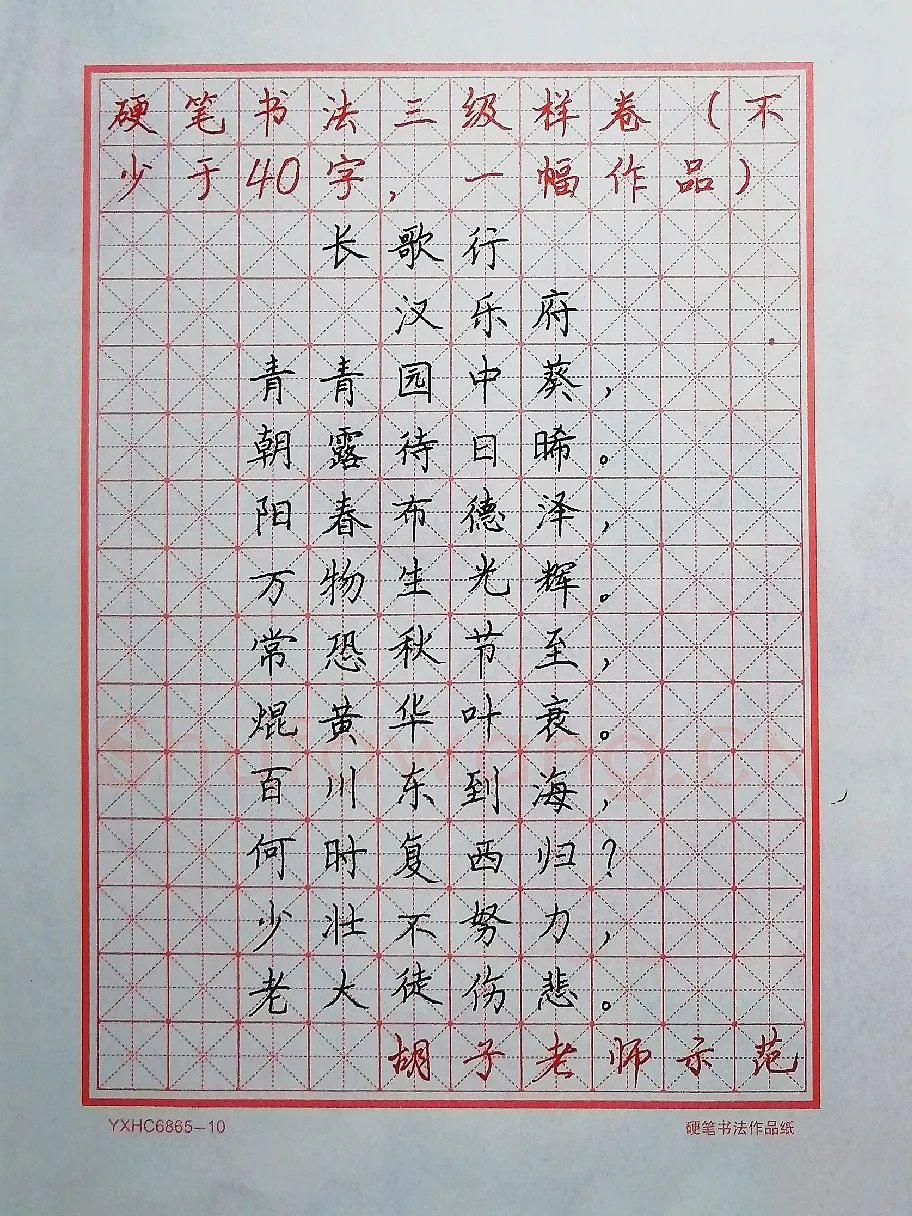 硬笔书法三级样卷（不
少于40字，一幅作品）
长歌行
汉乐府
青青园中葵，
朝露待日晞。
阳春布德泽，
万物生光辉。
常恐秋节至，
焜黄华叶衰。
百川东到海，
何时复西归？
少壮不努力，
老大徒伤悲。
胡子老师示范
YXHC6865-10 硬笔书法作品纸